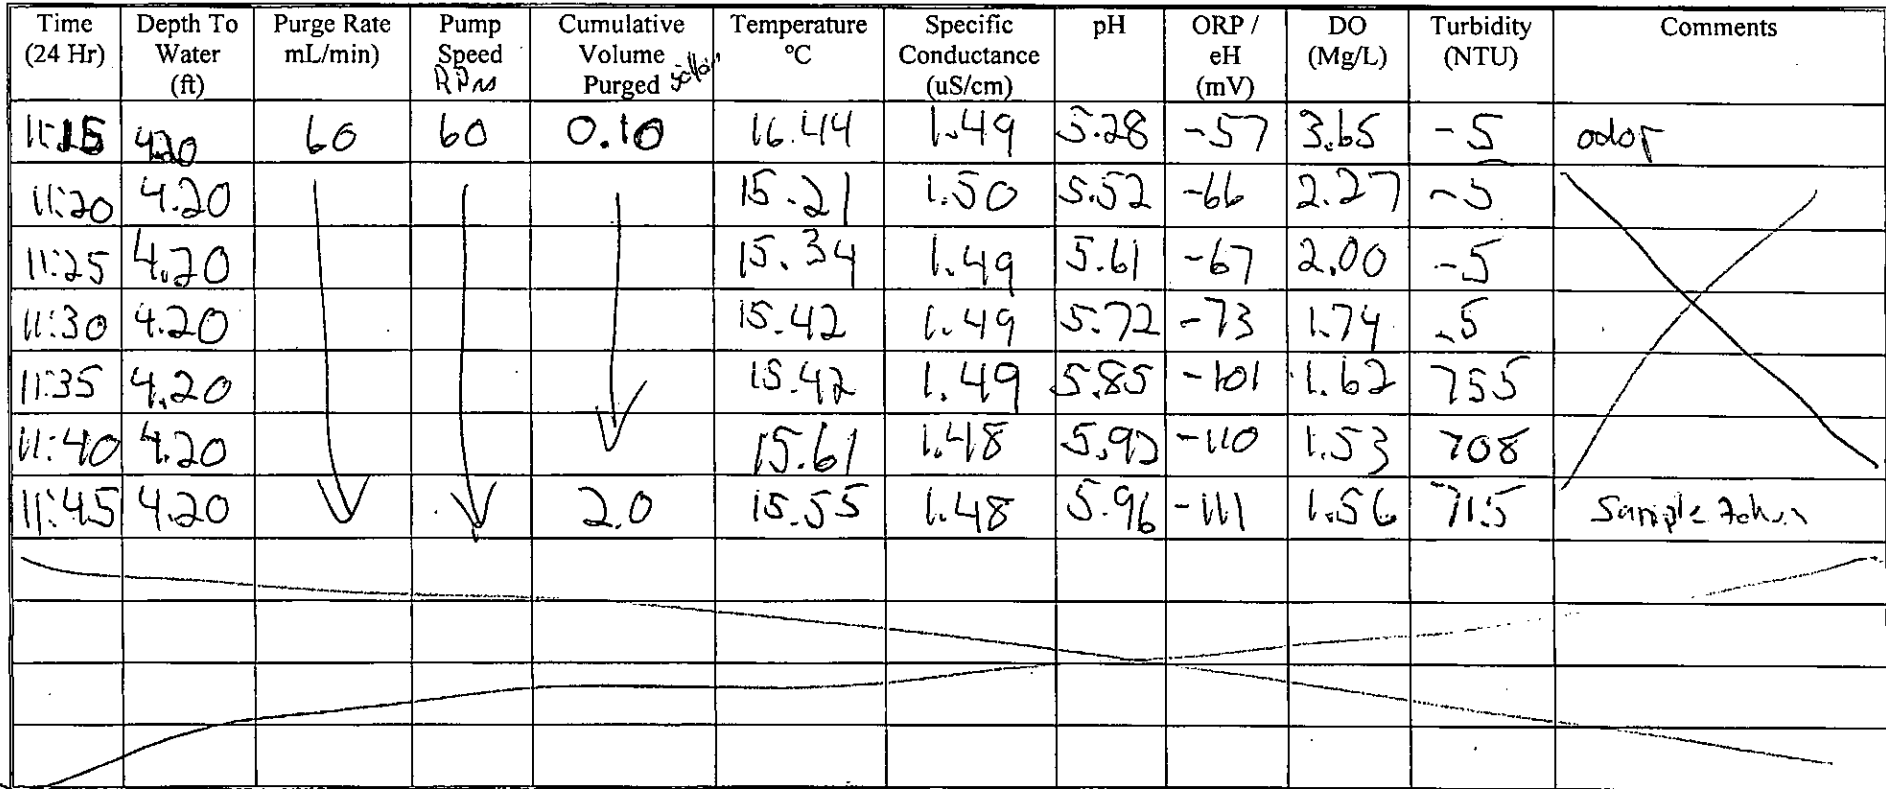 Time (24 Hr) Depth To Water (ft) Purge Rate mL/min) Pump Speed RPM Cumulative Volume Purged gallon Temperature ºC Specific Conductance (uS/cm) pH ORP / eH (mV) DO (Mg/L) Turbidity (NTU) Comments
11:15 4.20 60 60 0.10 16.44 1.49 5.28 -57 3.65 -5 odor
11:20 4.20 15.21 1.50 5.52 -66 2.27 -5
11:25 4.20 15.34 1.49 5.61 -67 2.00 -5
11:30 4.20 15.42 1.49 5.72 -73 1.74 -5
11:35 4.20 15.42 1.49 5.85 -101 1.62 755
11:40 4.20 15.61 1.48 5.92 -110 1.53 708
11:45 4.20 2.0 15.55 1.48 5.96 -111 1.56 715 Sample taken